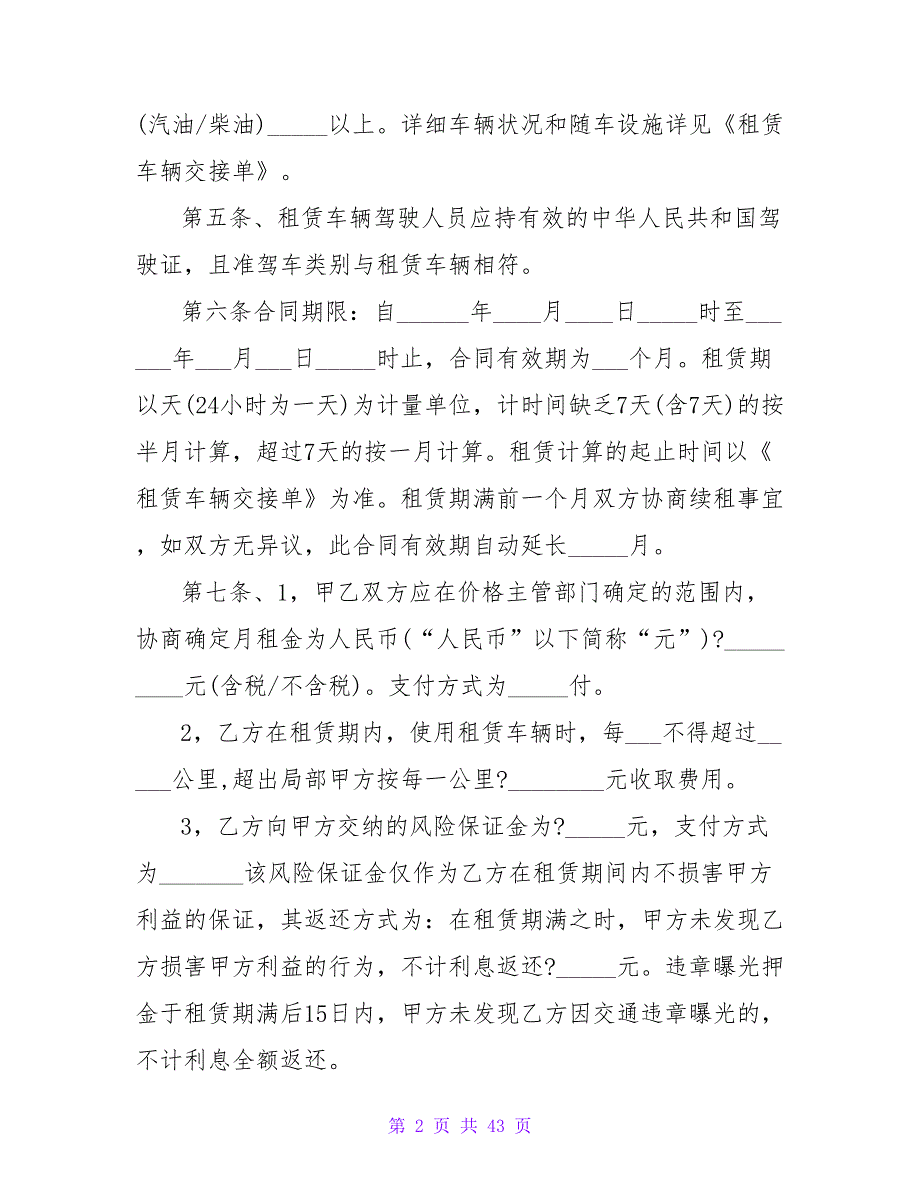 (汽油/柴油)_____以上。详细车辆状况和随车设施详见《租赁
车辆交接单》。
第五条、租赁车辆驾驶人员应持有效的中华人民共和国驾
驶证，且准驾车类别与租赁车辆相符。
第六条合同期限：自______年____月____日_____时至___
___年___月___日_____时止，合同有效期为___个月。租赁期
以天(24小时为一天)为计量单位，计时间缺乏7天(含7天)的按
半月计算，超过7天的按一月计算。租赁计算的起止时间以《
租赁车辆交接单》为准。租赁期满前一个月双方协商续租事宜
，如双方无异议，此合同有效期自动延长_____月。
第七条、1，甲乙双方应在价格主管部门确定的范围内，
协商确定月租金为人民币(“人民币”以下简称“元”)?_____
____元(含税/不含税)。支付方式为_____付。
2，乙方在租赁期内，使用租赁车辆时，每___不得超过__
___公里,超出局部甲方按每一公里?________元收取费用。
3，乙方向甲方交纳的风险保证金为?_____元，支付方式
为_______该风险保证金仅作为乙方在租赁期间内不损害甲方
利益的保证，其返还方式为：在租赁期满之时，甲方未发现乙
方损害甲方利益的行为，不计利息返还?_____元。违章曝光押
金于租赁期满后15日内，甲方未发现乙方因交通违章曝光的，
不计利息全额返还。
第 2 页 共 43 页